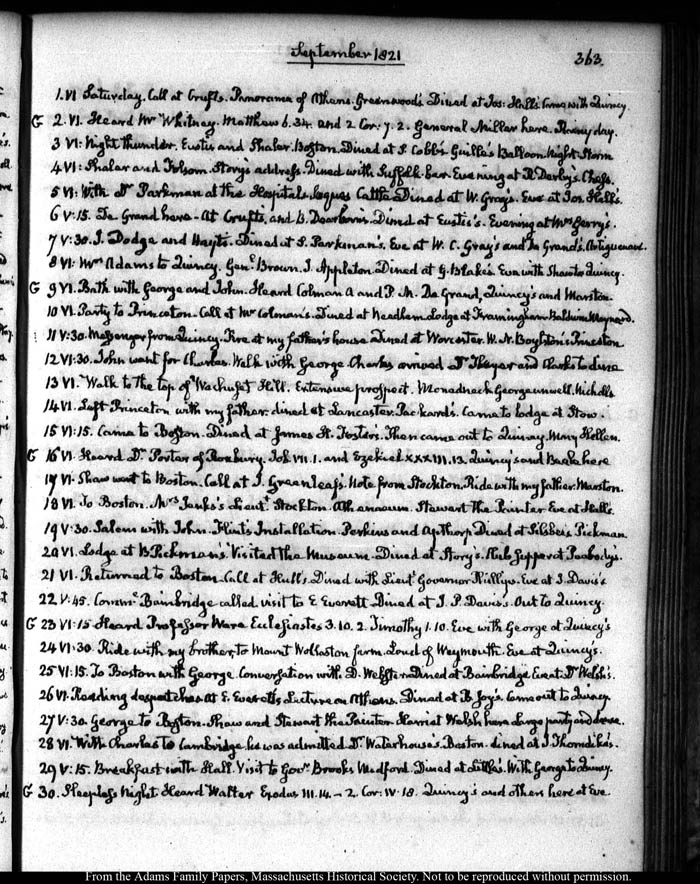 September 1821
363.
1. VI Saturday. Call at Crufts. Panorama of Athens. Greenwood's. Dined at Jos: Hall's. Came with Quincy
G 2. VI. Heard Mr Whitney. Matthew 6. 34. and 2 Cor: 7. 2. General Miller here. Rainy day.
3 VI. Night thunder. Eustis and Shaler. Boston. Dined at S Cobb's Guille's Balloon. Night Storm
4 VI: Shaler and Folsom. Story's address. Dined with Suffolk bar. Evening at R. Derby's. Chess.
5 VI: With Dr Parkman at the Hospitals. Cattle Dined at W. Gray's. Eve at Jos. Hall's.
6 V: 15. De Grand here. At Crufts, and B. Dearborn's. Dined at Eustis's. Evening at Mrs Gerry's.
7 V: 30. J. Dodge and Hayti. Dined at S. Parkman's. Eve at W. C. Gray's and De Grand's.
8 VI: Mrs Adams to Quincy. Genl Brown. J. Appleton. Dined at G. Blake's Eve with Shaw to Quincy
G 9 VI. Bath with George and John. Heard Colman A and P. M. De Grand, Quincy's and Marston
10 VI. Party to Princeton. Call at Mr Colman's. Dined at Needham. Lodge at Framingham. Baldwin. Maynard.
11 V: 30. Messenger from Quincy. Fire at my father's house. Dined at Worcester. W. N. Boylston's Princeton
12 VI: 30. John went for Charles. Walk with George. Charles arrived Dr Thayer and Clarks to dine
13 VI. Walk to the top of Wachuset Hill. Extensive prospect. Monadnock. George unwell. Nicholls
14 VI. Left Princeton with my father. dined at Lancaster. Packard's. Came to lodge at Stow.
15 VI: 15. Came to Boston. Dined at James H. Foster's. Then came out to Quincy. Mary Hellen.
G 16 VI. Heard Dr Porter of Roxbury. Job VII. 1. and Ezekiel XXXIII. 13. Quincy's and Beale here
17 VI. Shaw went to Boston. Call at J. Greenleaf's. Note from Stockton. Ride with my father. Marston.
18 VI. To Boston. Mrs Lieut Stockton. Athenaeum. Stewart the Painter Eve at Hall's.
19 V: 30. Salem with John. Flint's Installation. Perkins and Apthorp Dined at Pickman
20 VI. Lodge at B Pickman's. Visited the Museum. Dined at Story's. Supper at Peabody's.
21 VI. Returned to Boston. Call at Hull's. Dined with Lieut Governor Phillips. Eve at J. Davis's
22 V: 45. Commre Bainbridge called. visit to E Everett. Dined at J. P. Davis's. Out to Quincy.
G 23 VI: 15 Heard Professor Ware Ecclesiastes 3. 10. 2. Timothy 1. 10. Eve with George at Quincy's
24 VI: 30. Ride with my brother, to Mount Wollaston farm. Loud of Weymouth. Eve at Quincy's.
25 VI: 15. To Boston with George. Conversation with D. Webster. Dined at Bainbridge. Eve at Dr Welsh's.
26 VI. Reading despatches. At E. Everett's Lecture on Athens. Dined at B. Joy's. Came out to Quincy
27 V: 30. George to Boston. Shaw and Stewart the Painter. Harriet Welsh here. Large party and dance.
28 VI. With Charles to Cambridge. he was admitted. Dr Waterhouse's. Boston. dined at J. Thorndike's.
29 V: 15. Breakfast with Hall. Visit to Govr Brooks Medford. Dined at Little's. With George to Quincy.
G 30. Sleepless Night. Heard Walter Exodus III. 14. – 2. Cor: IV. 18. Quincy's and others here at Eve.
From the Adams Family Papers, Massachusetts Historical Society. Not to be reproduced without permission.